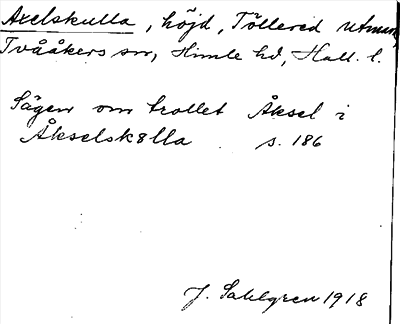 Axelskulla, höjd, Töllered utmark,
Tvååkers sn, Himle hd, Hall. l.
Sägen om trollet Åksel i
Åkselsk8lla s. 186
J. Sahlgren 1918